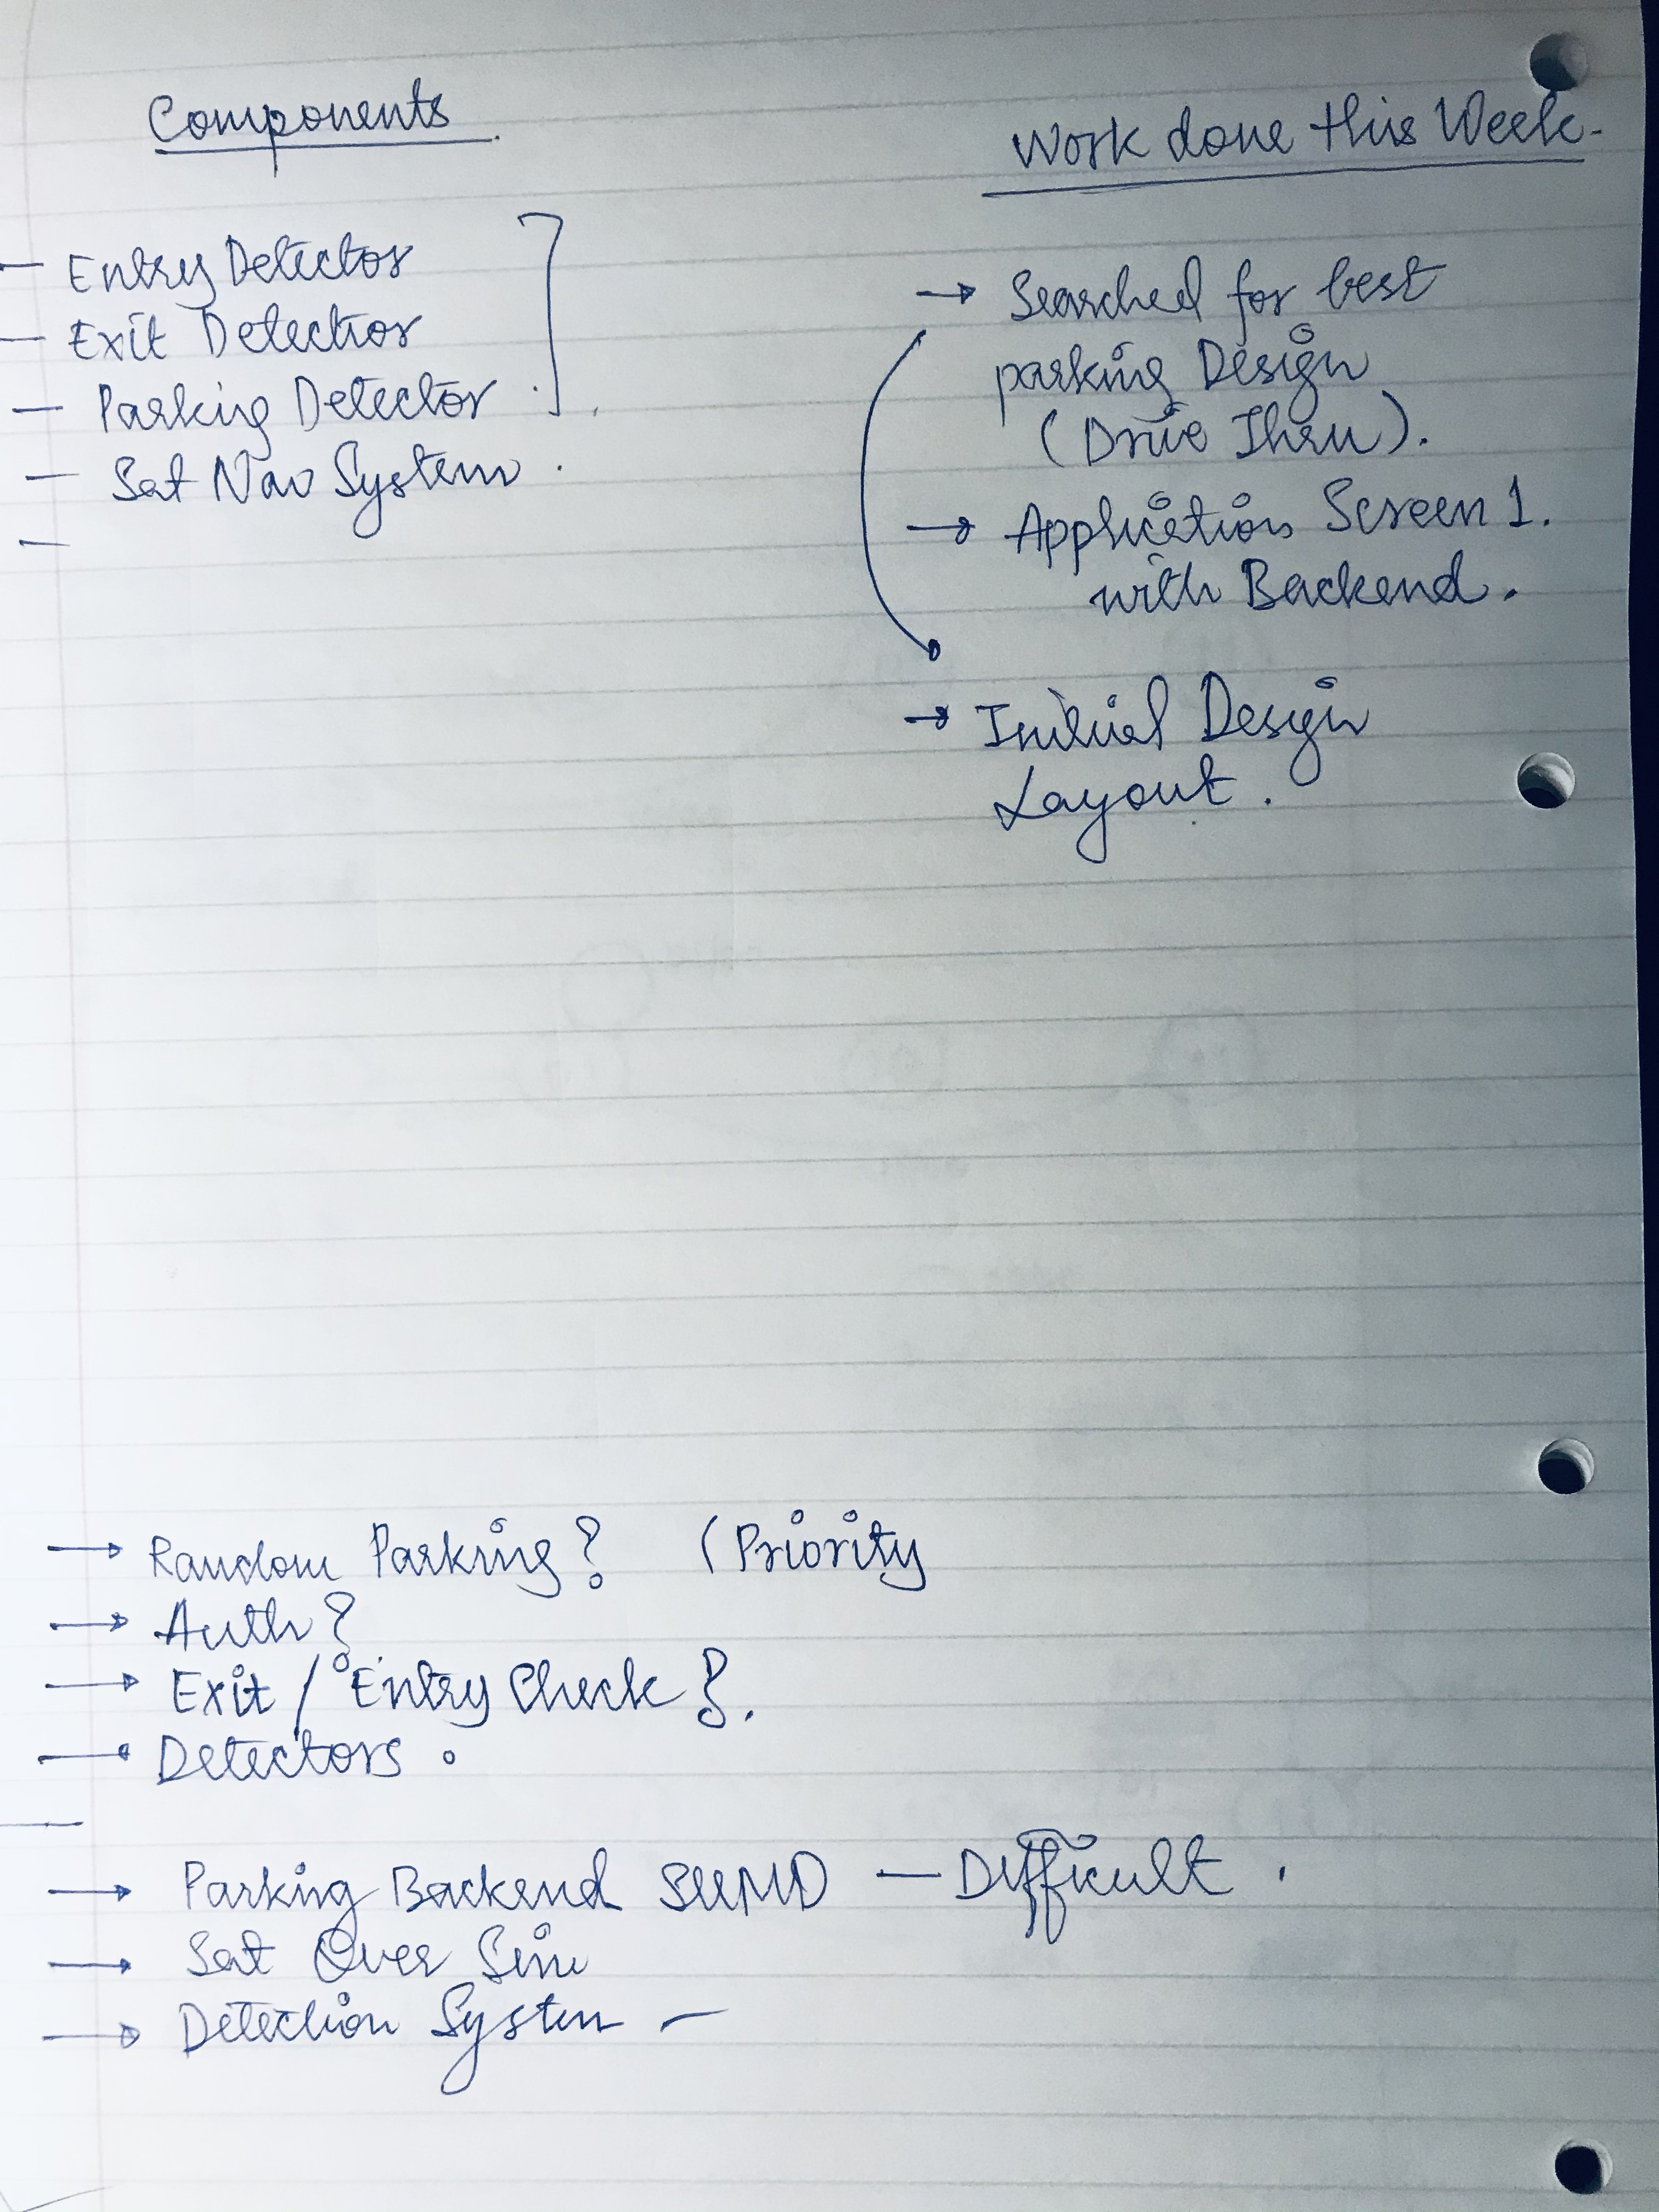 Components.
- Entry Detector
- Exit Detector
- Parking Detector.
- Sat Nav System.
-
Work done this Week-
→ Searched for best
parking Design
(Drive Thru).
→ Application Screen 1.
with Backend.
→ Initial Design
Layout.
→ Random Parking? (Priority
→ Auth?
→ Exit / Entry Check?.
→ Detectors.
→ Parking Backend — Difficult.
→ Sat Over
→ Detection System —